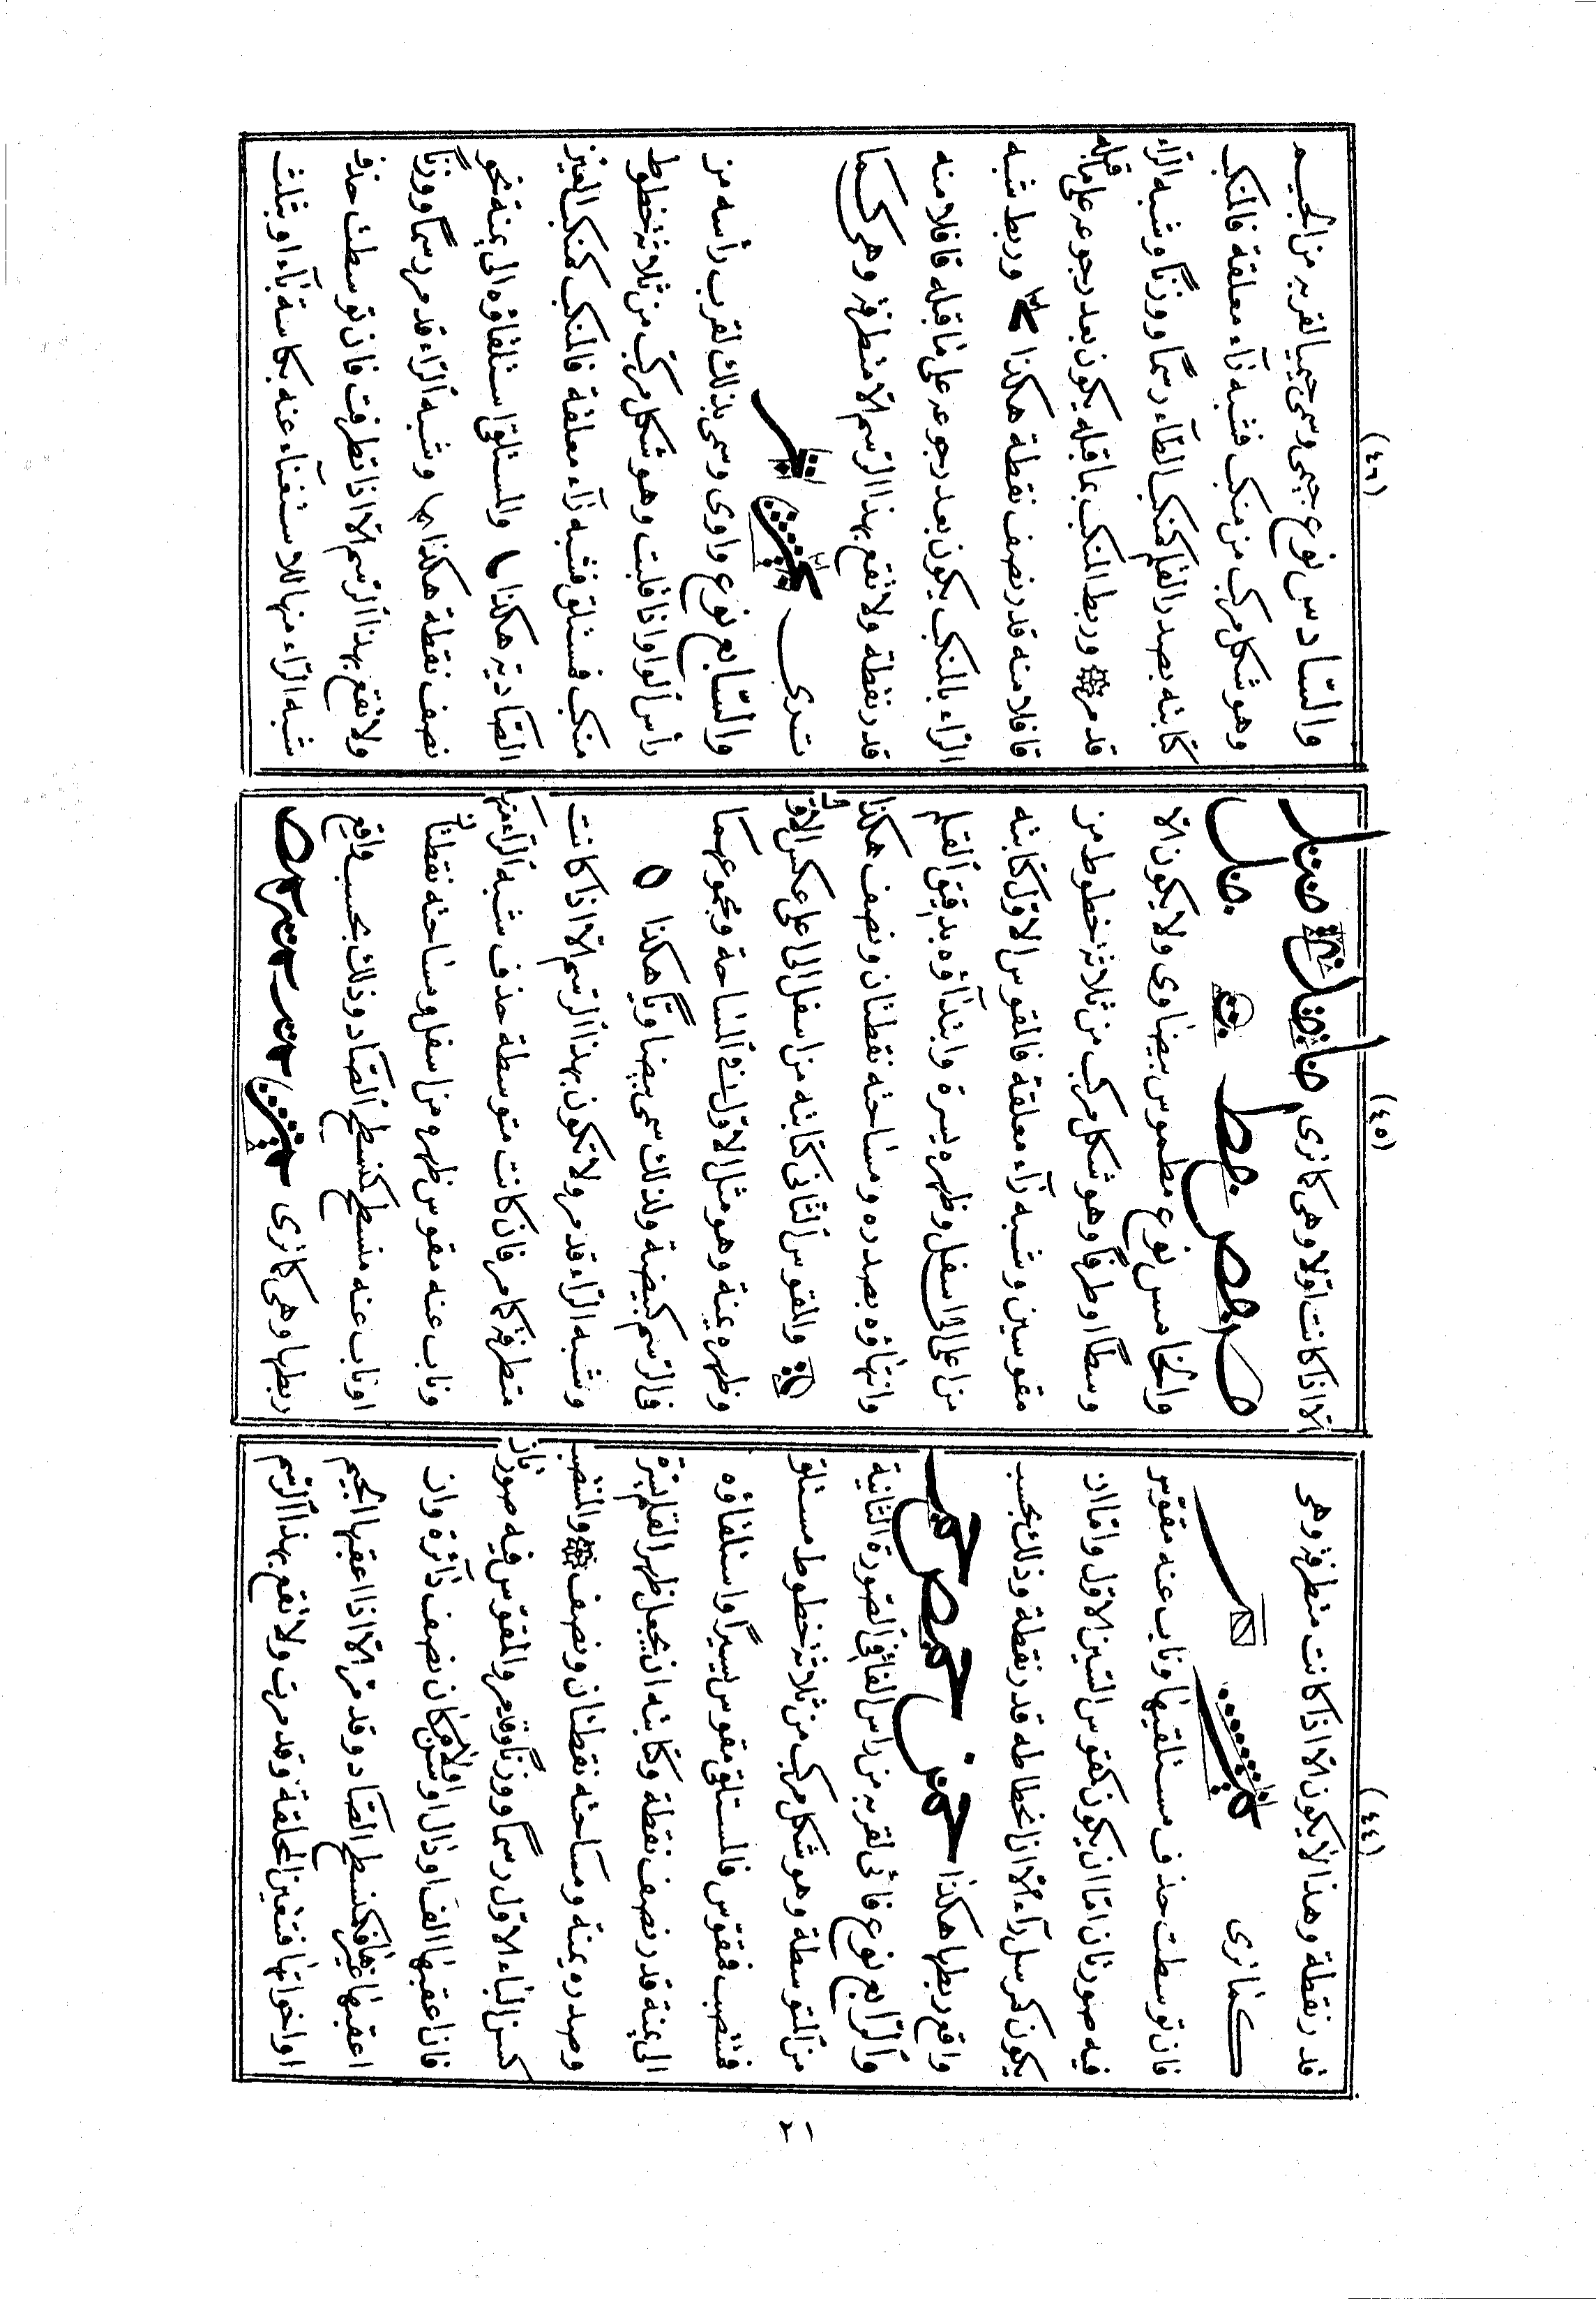 (٤٤)
قدر نقطة وهذا لا يكون الا اذا كانت متطرفة وهى
كما ترى
فان توسطت حذف مستلقيها وناب عنه مقوس
فيه صورتان اما ان يكون كقوس السين الاول واما ان
يكون كرسل رآء الا ان انحطاطه قدر نقطة وذلك بحسب
واقع ربطها هكذا
والرابع نوع فائى لقربه من راس الفا فى الصورة الثانية
من المتوسطة وهو شكل مركب من ثلاثة خطوط مستلق
فمنتصب فمقوس فالمستلقى مقوس يسيرا واستلقاؤه
الى يمنة قدر نصف نقطة وكتابته ان يجعل ظهر القلم يسرة
وصدره يمنة ومساحته نقطتان ونصف والمنتصب
كسن الباء الاول رسما ووزنا وقد مر والمقوس فيه صورتان
فان اعقبها الف او دال او لام كان نصف دآئرة وان
اعقبها غيرها فكمنسطح الصاد وقد مر الا اذا اعقبها الجيم
او اخواتها فتتعين الحلقة وقد مرت ولا تقع بهذا الرسم
(٤٥)
الا اذا كانت اولا وهى كما ترى
والخامس نوع مطموس بيضاوى ولا يكون الا
وسطا او طرفا وهو شكل مركب من ثلاثة خطوط من
مقوسين وشبه رآء معلقة فالمقوس الاول كتابته
من اعلى الى اسفل وظهره يسرة وابتدآؤه بدقيق القلم
وانتهاؤه بصدره ومساحته نقطتان ونصف هكذا
والمقوس الثانى كتابته من اسفل الى اعلى عكس الاول
وظهره يمنة وهو مثل الاول فى المساحة ومجموعهما
فى الرسم كبيضة ولذلك سمى بيضاويا هكذا
وشبه الرآء قد مر ولا تكون بهذا الرسم الا اذا كانت
متطرفة كما مر فان كانت متوسطة حذف شبه الرآء منها
وناب عنه مقوس ظهره من اسفل ومساحته نقطتان
او ناب عنه منسطح كمنسطح الصاد وذلك بحسب واقع
ربطها وهى كما ترى
(٤٦)
والسادس نوع جيمى وسمى جيميا لقربه من الجيم
وهو شكل مركب من منكب فشبه رآء معلقة فالمنكب
كتابته بصدر القلم كمنكب الطآء رسما ووزنا وشبه الرآء
قد مر وربط المنكب بما قبله يكون بعد رجوعه على ما قبله
قافلا منه قدر نصف نقطة هكذا وربط شبه
الرآء بالمنكب يكون بعد رجوعه على ما قبله قافلا منه
قدر نقطة ولا تقع بهذا الرسم الا متطرفة وهى كما
ترى
والسابع نوع واوى وسمى بذلك لقرب رأسه من
رأس الواو اذا قلبت وهو شكل مركب من ثلاثة خطوط
منكب فمستلق فشبه رآء معلقة فالمنكب كمنكب العين
الصادية هكذا والمستلقى استلقاؤه الى يمنة نحو
نصف نقطة هكذا وشبه الرآء قد مر رسما ووزنا
ولا تقع بهذا الرسم الا اذا تطرفت فان توسطت حذف
شبه الرآء منها للاستغناء عنه بكاسة بآء او بثلث